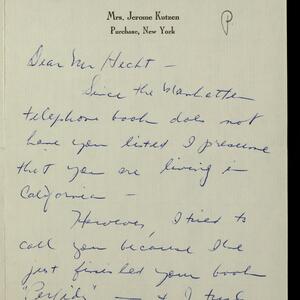 Mrs. Jerome Kutzen
Purchase, New York
P
Dear Mr Hecht –
Since the Manhattan
telephone book does not
have you listed I presume
that you are living in
California –
However, I tried to
call you because I've
just finished your book
"Perfidy" — & I